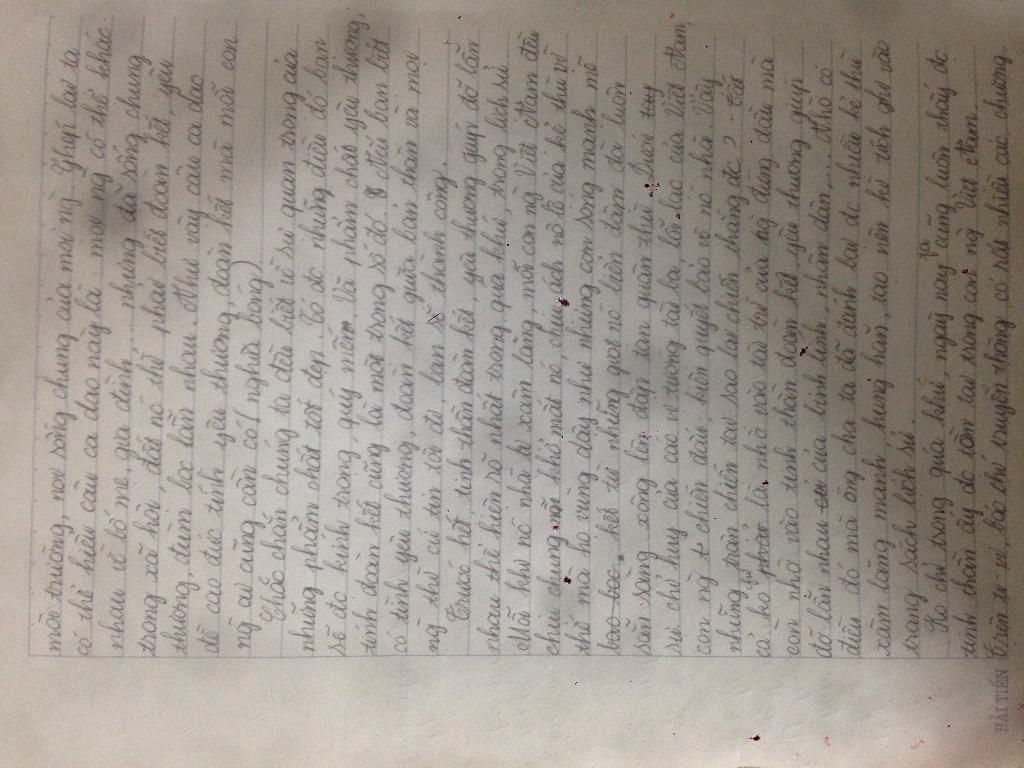 môi trường, nơi sống chung của mọi ng`. Như lại ta
có thể hiểu câu ca dao này là mọi ng` có thể khác
nhau về bố mẹ, gia đình,... nhưng đã sống chung
trong xã hội, đất nó thì phải biết đoàn kết, yêu
thương, đùm bọc lẫn nhau. Như vậy câu ca dao
đề cao đức tính yêu thương, đoàn kết mà mỗi con
ng` ai cũng cần có (nghĩa bóng)
Chắc chắn chúng ta đều biết về sự quan trọng của
những phẩm chất tốt đẹp. Có đc những điều đó bạn
sẽ đc kính trọng, quý mến. Và phẩm chất yêu thương,
tính đoàn kết cũng là một trong số đó. Nếu bạn biết
có tình yêu thương, đoàn kết giữa bản thân và mọi
ng` thì cứ tin tôi đi, bạn sẽ thành công.
Trước hết, tinh thần đoàn kết, yêu thương giúp đỡ lẫn
nhau thể hiện rõ nhất trong quá khứ, trong lịch sử.
Mỗi khi nó nhà bị xâm lăng, mỗi con ng` Việt Nam đều
chịu chung nỗi khổ mất nó, chịu ách nô lệ của kẻ thù vì
thế mà họ vùng dậy như những con sóng mạnh mẽ
kết từ những giọt nó liên đâm đã luôn
sẵn sàng xông lên đập tan quân thù. Dưới
sự chỉ huy của các vị tướng tài ba, lỗi lạc của Việt Nam,
con ng` chiến đấu, kiên quyết bảo vệ nó nhà. Vậy
những trận chiến tại sao lại chiến thắng đc? Tất
cả ko chỉ là nhờ vào tài trí của ng` đứng đầu mà
còn nhờ vào tinh thần đoàn kết, yêu thương giúp
đỡ lẫn nhau của binh lính, nhân dân,... Nhờ có
điều đó mà ông cha ta đã đánh bại đc nhiều kẻ thù
xâm lăng mạnh, hung hãn, tạo nên kì tích ghi vào
trang sách lịch sử.
Ko chỉ trong quá khứ, ngày nay ta cũng luôn thấy đc
tinh thần ấy đc tồn tại trong con ng` Việt Nam.
Trên ti vi, báo chí truyền thông có rất nhiều các chương
HẢI TIẾN